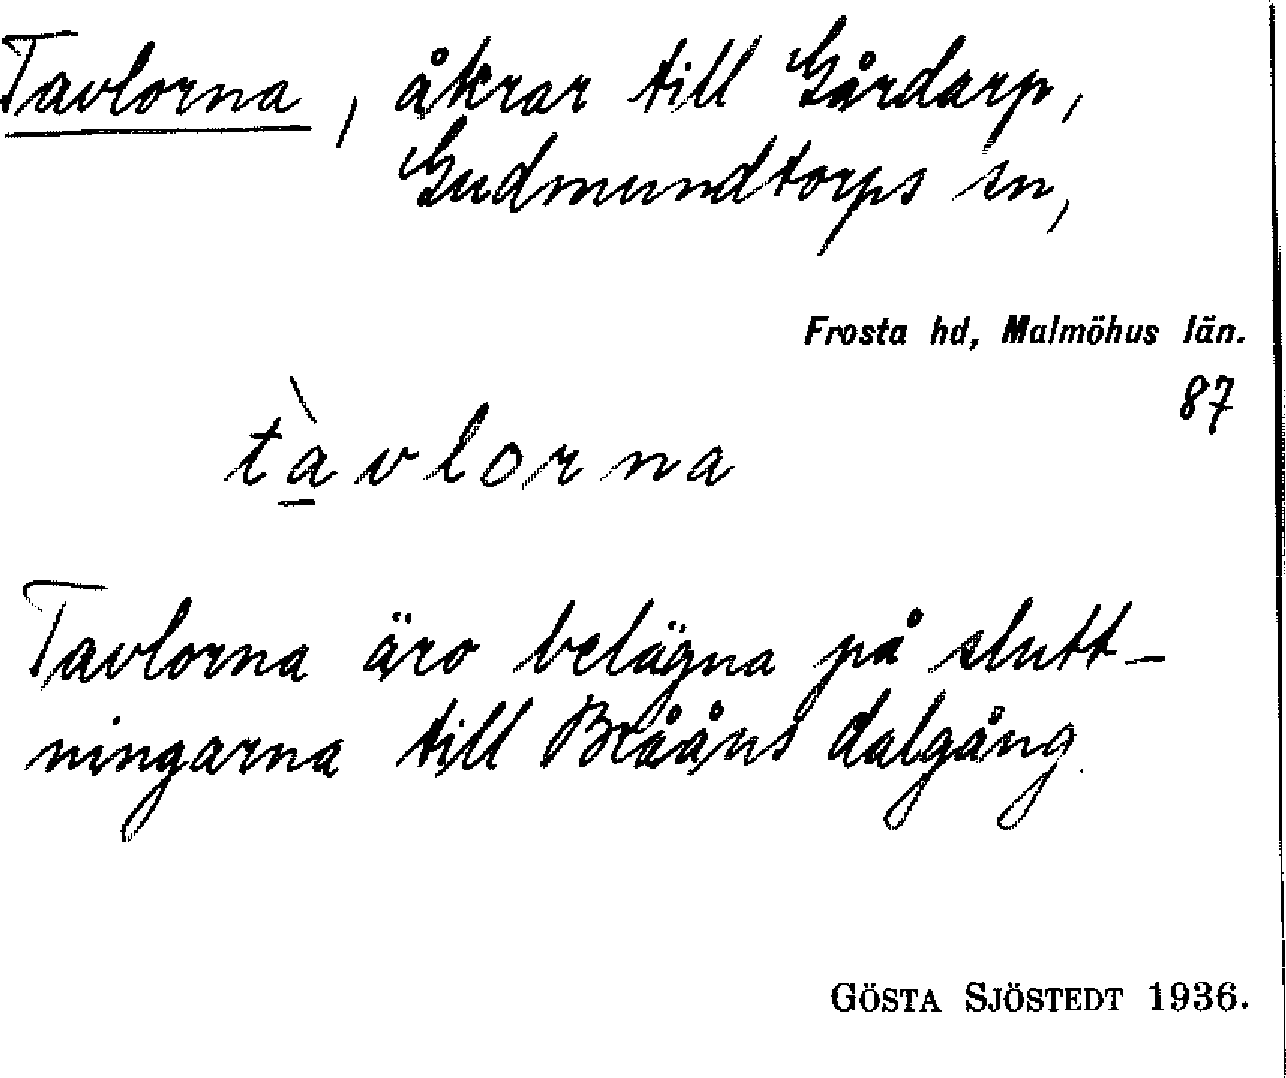 Tavlorna, åkrar till Gårdarp,
Gudmundtorps sn,
Frosta hd, Malmöhus län.
87
tàvlorna
Tavlorna äro belägna på slutt-
ningarna till Brååns dalgång.
GÖSTA SJÖSTEDT 1936.